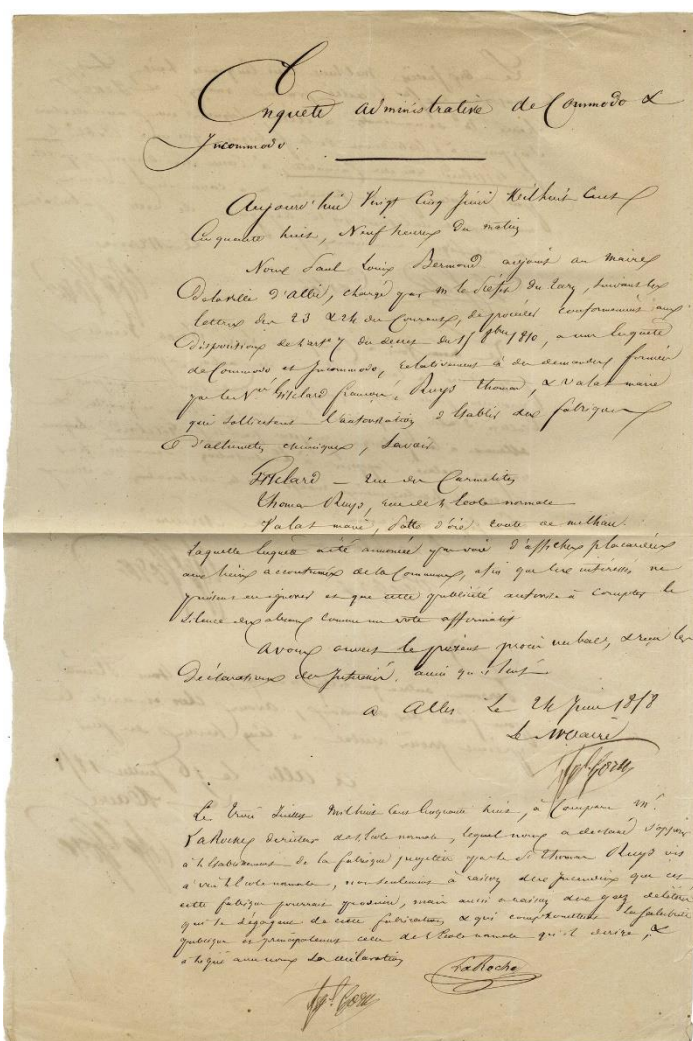 Enquête administrative de Commodo &
Incommodo.
Aujourd'hui Vingt Cinq Juin Mil huit Cent
Cinquante huit, Neuf heures du matin
Nous Paul Louis Bermond adjoint au maire
De la ville d'Albi, chargé par M. le Préfet du Tarn, suivant les
lettres des 23 & 24 du Courant, de procéder conformément aux
dispositions de l'art. 7 du decret du 15 8bre 1810, a une Enquête
de Commodo et Incommodo, relativement à des demandes formées
par les Mrs François, Ruys Thomas, & Valat marie
qui sollicitent l'autorisation d'Etablir des fabriques
d'allumettes chimiques, Savoir
rue des Carmelites
Thomas Ruys, rue de l'Ecole normale
Valat marie, Patte d'oie, route de milhau.
Laquelle Enquête a été annoncée par voie d'affiches placardées
aux lieux accoutumés de la Commune, afin que les intéressés ne
puissent en ignorer et que cette publicité autorise à compter le
silence des absens comme un vote affirmatif
avons ouvert le présent procès verbal, & reçu les
Déclarations des Intéressés, ainsi qu'il suit
a Albi Le 24 Juin 1858
Le Maire
Le trois Juillet Mil huit Cent Cinquante huit, à Comparu Mr.
LaRoche directeur de l'Ecole normale, lequel nous a déclaré s'opposer
à l'Etablissement de la fabrique projetée par le Sr. Thomas Ruys vis
à vis l'Ecole normale, non seulement à raison des Incendies que
cette fabrique pourrait produire, mais aussi a raison des gaz délétères
qui se dégagent de cette fabrication, & qui compromettent la salubrité
publique et principalement celle de l'Ecole normale qu'il dirige, &
a signé avec nous Sa déclaration
LaRoche